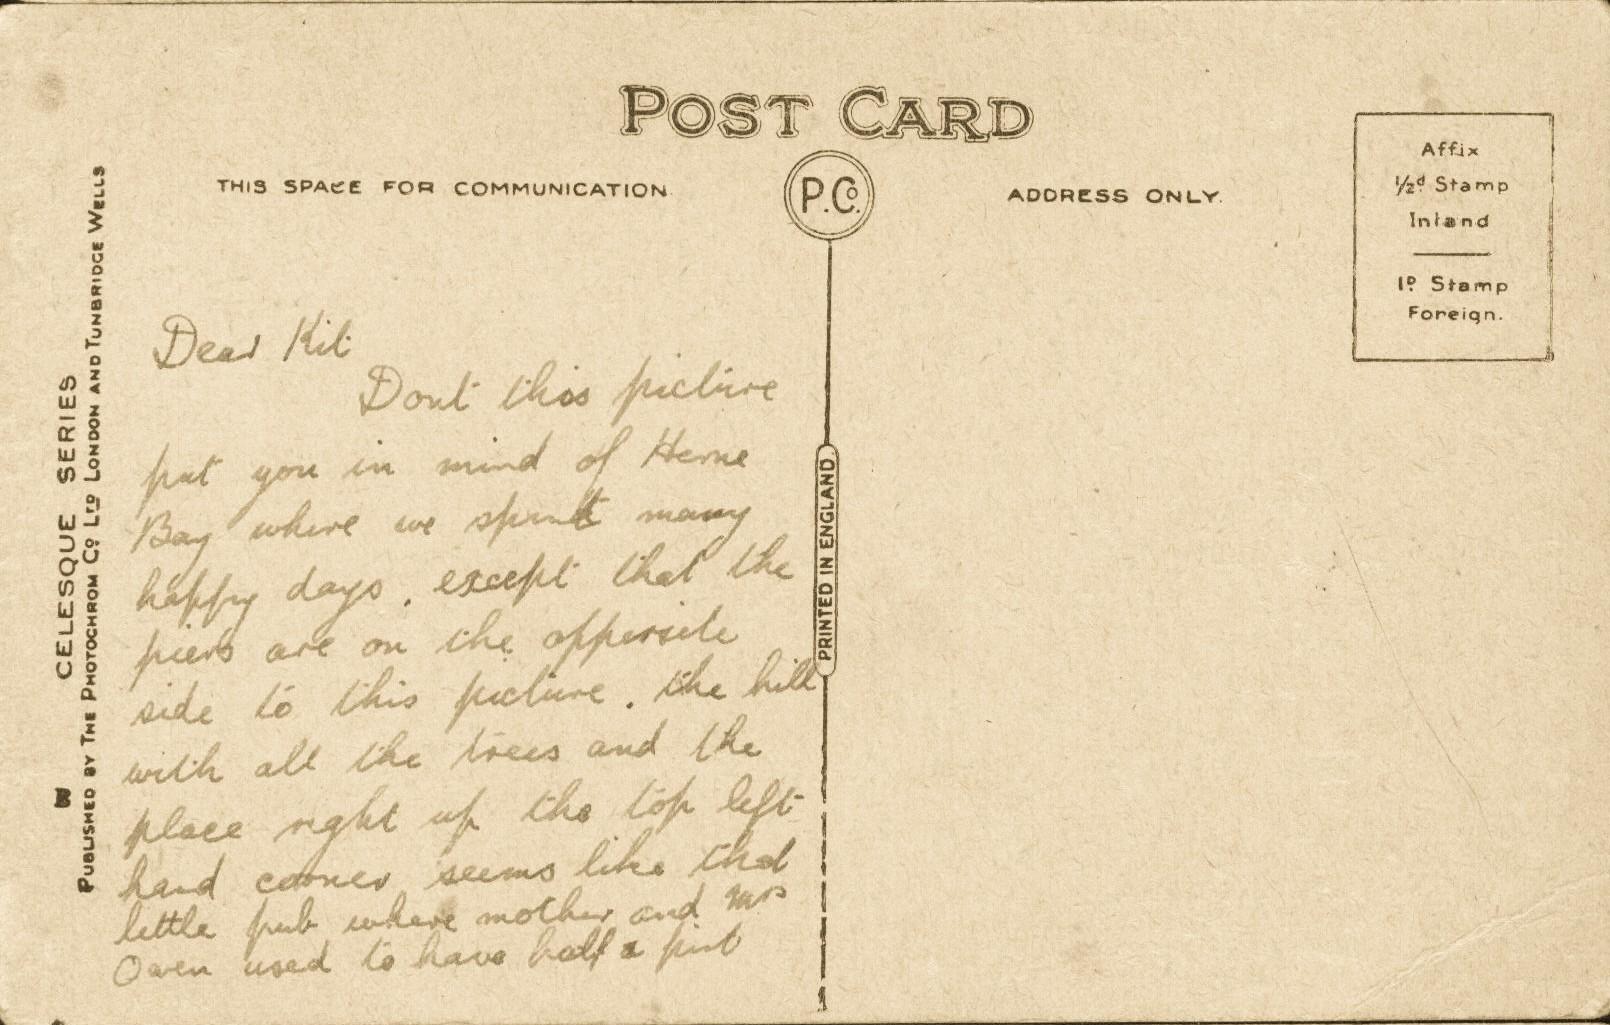 POST CARD
THIS SPACE FOR COMMUNICATION
P.Co.
ADDRESS ONLY.
Affix
1/2d Stamp
Inland
1D. Stamp
Foreign.
CELESQUE SERIES
PUBLISHED BY THE PHOTOCHROM Co LTD LONDON AND TUNBRIDGE WELLS
PRINTED IN ENGLAND
Dear Kit
Dont this picture
put you in mind of Herne
Bay where we spent many
happy days. except that the
piers are on the oppersite
side to this picture. the hill
with all the trees and the
place right up the top left
hand corner seems like that
little pub where mother and Mrs
Owen used to have half a pint